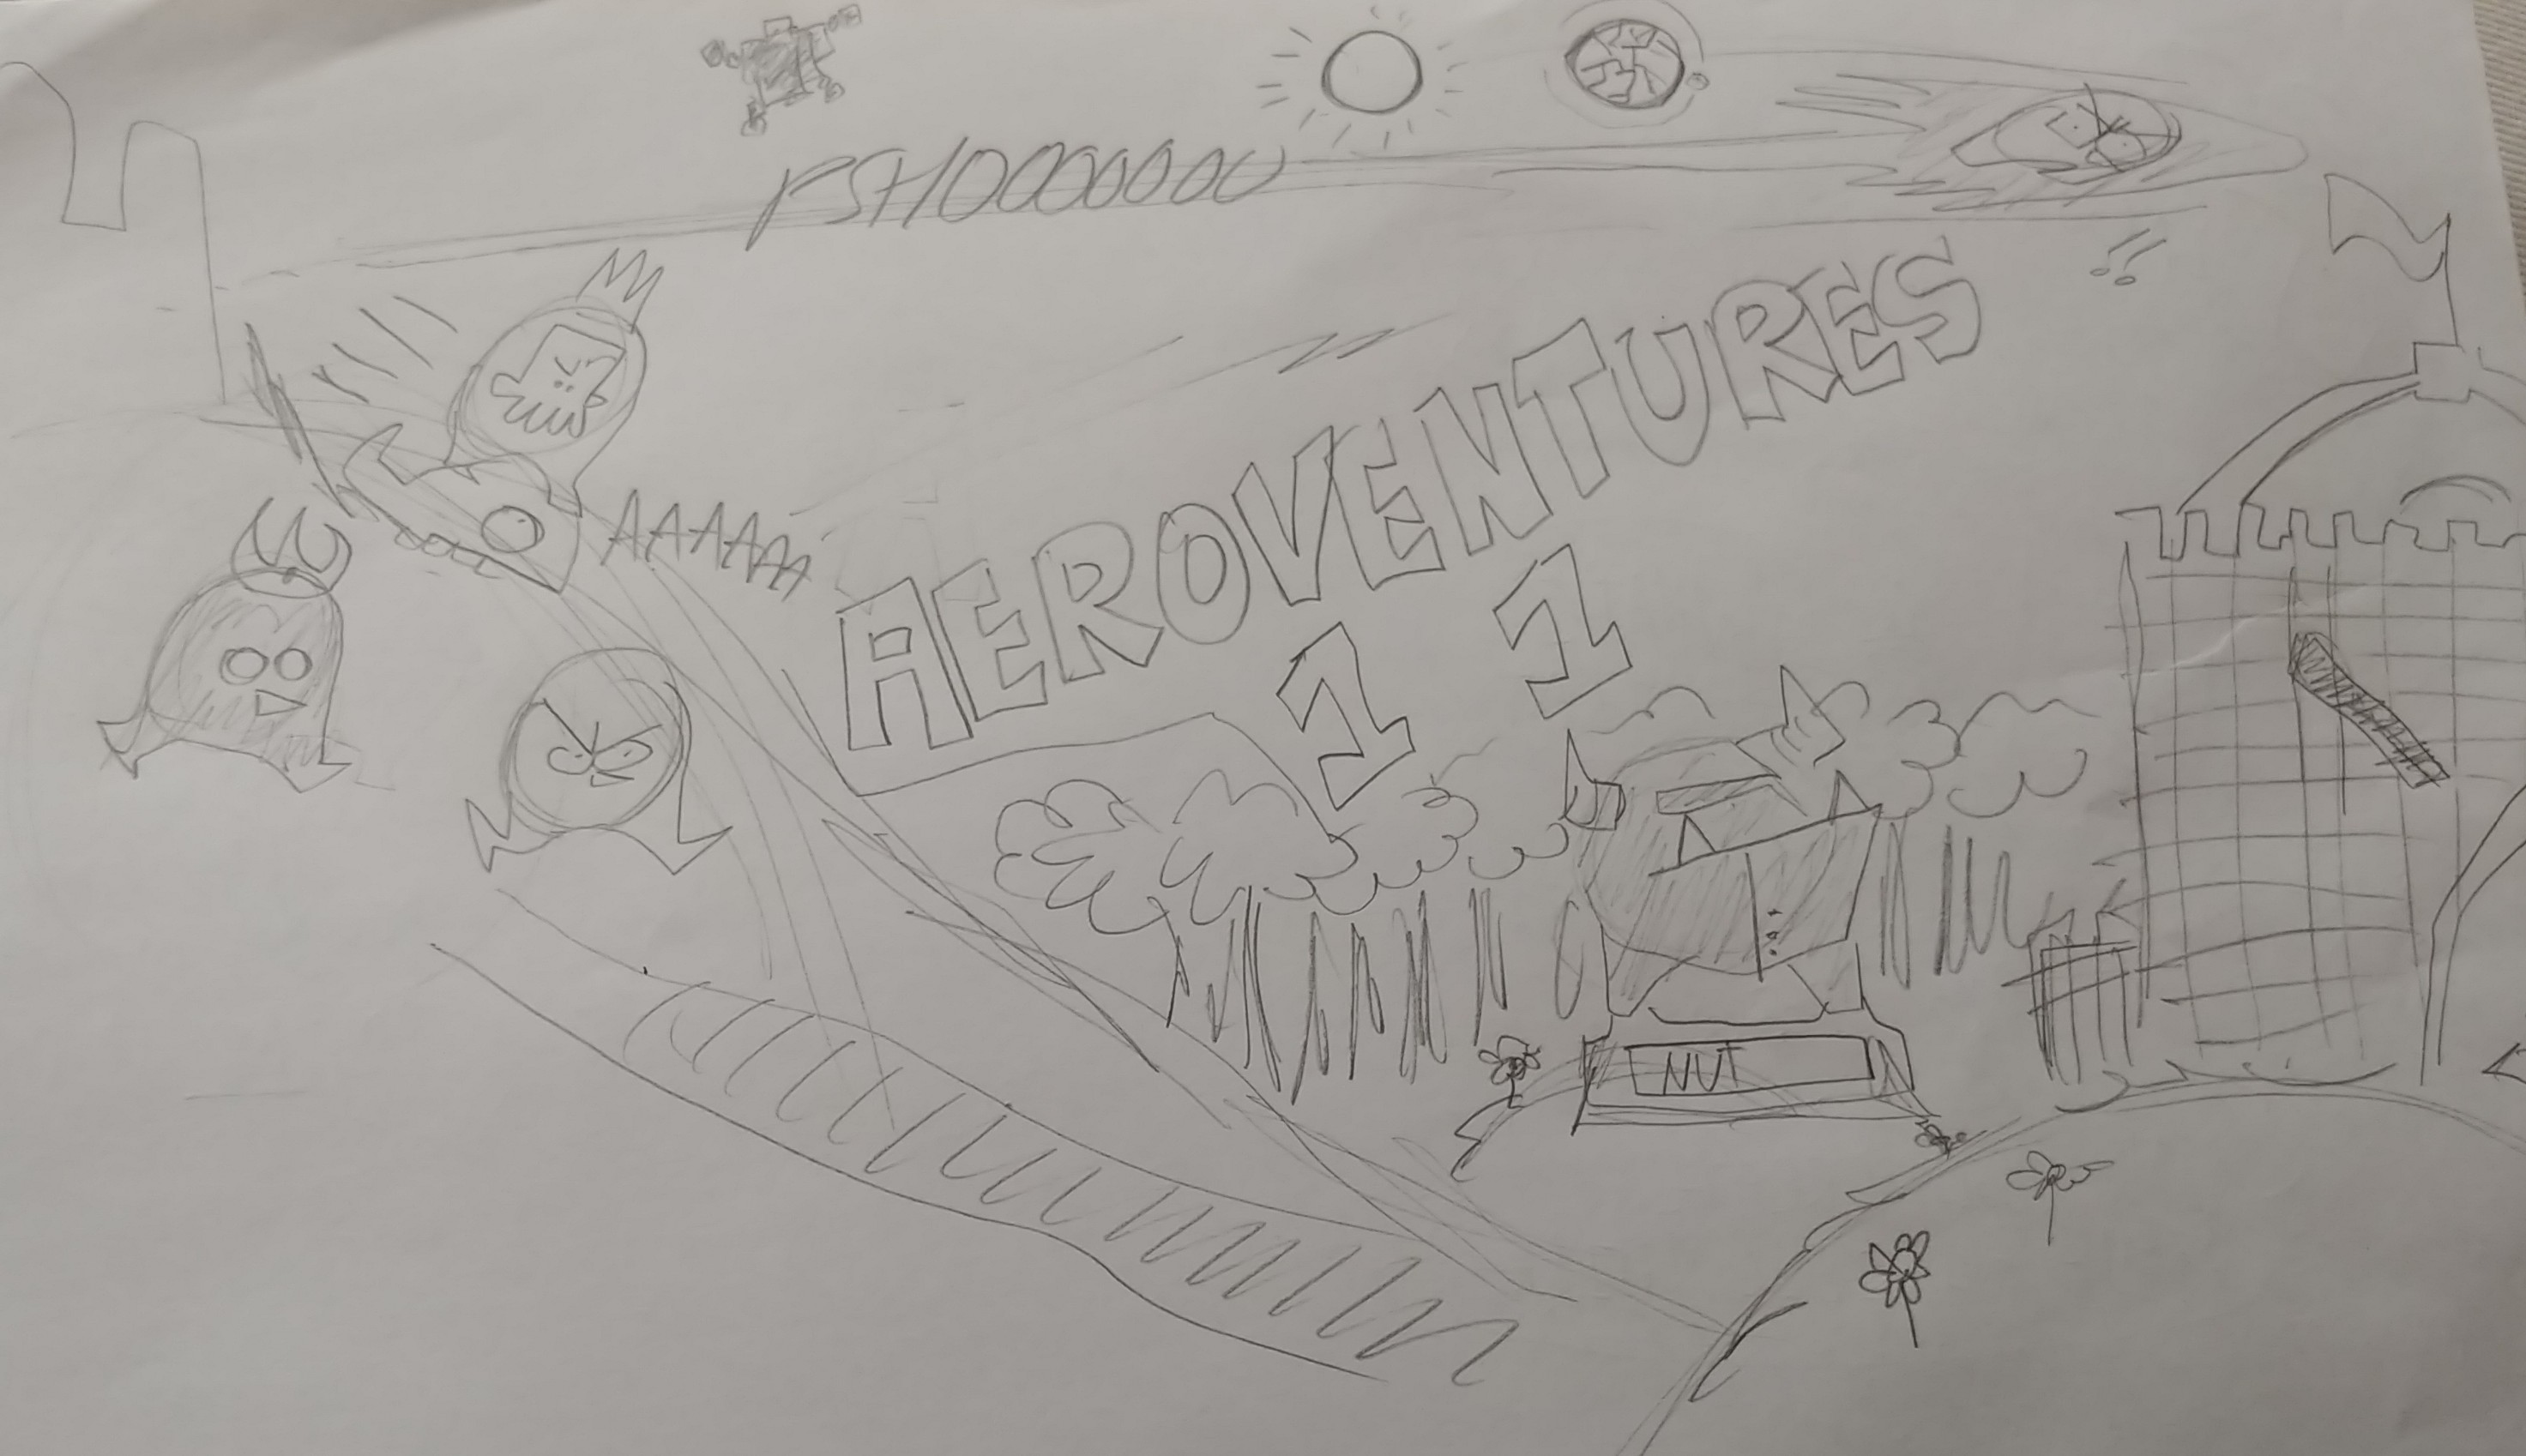 PSHOOOOOOOO
AAAAAAA
AEROVENTURES
11
NUT